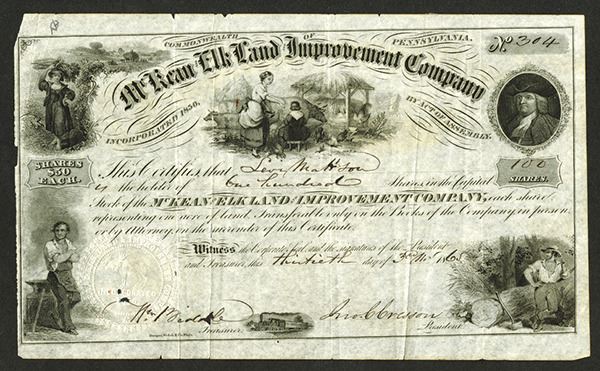 No 304
COMMONWEALTH OF PENNSYLVANIA.
McKean Elk Land Improvement Company
INCORPORATED 1856. BY ACT OF ASSEMBLY.
SHARES $50 EACH.
100 SHARES.
This Certifies that Levi Mattson
is the holder of One hundred Shares in the Capital
Stock of the McKEAN ELK LAND IMPROVEMENT COMPANY, each share
representing one acre of Land. Transferable only on the Books of the Company, in person
or by Attorney, on the surrender of this Certificate.
Witness the Corporate Seal and the signatures of the President
and Treasurer, this thirtieth day of
Wm Biddle
Treasurer.
Jno C Cresson
President.